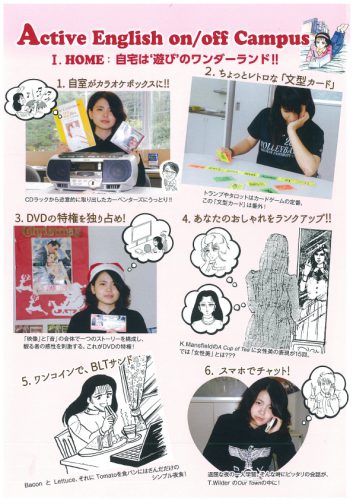 Active English on/off Campus
I. HOME : 自宅は‘遊び’のワンダーランド!!
1. 自室がカラオケボックスに!!
CDラックから恣意的に取り出したカーペンターズにうっとり!!
2. ちょっとレトロな「文型カード」
トランプやタロットはカードゲームの定番。
この「文型カード」は番外!
3. DVDの特権を独り占め!
Christmas
「映像」と「音」の合体で一つのストーリーを構成し、
観る者の感性を刺激する。これがDVDの特権!
4. あなたのおしゃれをランクアップ!!
K.MansfieldのA Cup of Teaに女性美の表現が15回。
では「女性美」とは???
5. ワンコインで、BLTサンド
Bacon と Lettuce、それに Tomatoを食パンにはさんだだけの
シンプル夜食!
6. スマホでチャット!
T.WilderのOur Townの中に!